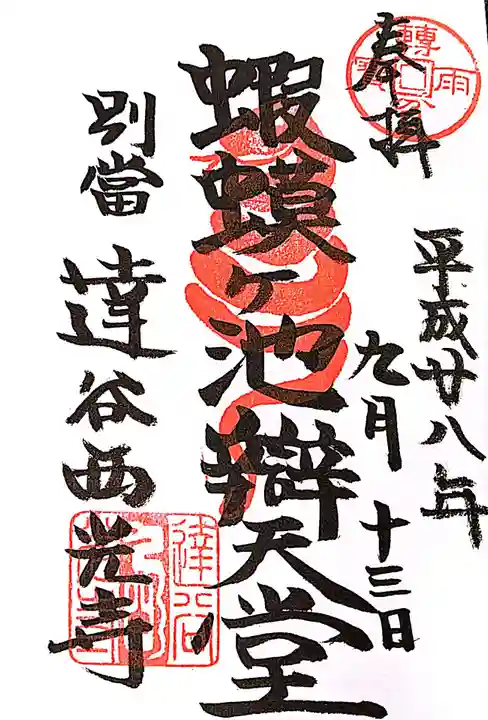 奉拝
平成廿八年
九月十三日
蝦蟆ヶ池辯天堂
別當 達谷西光寺